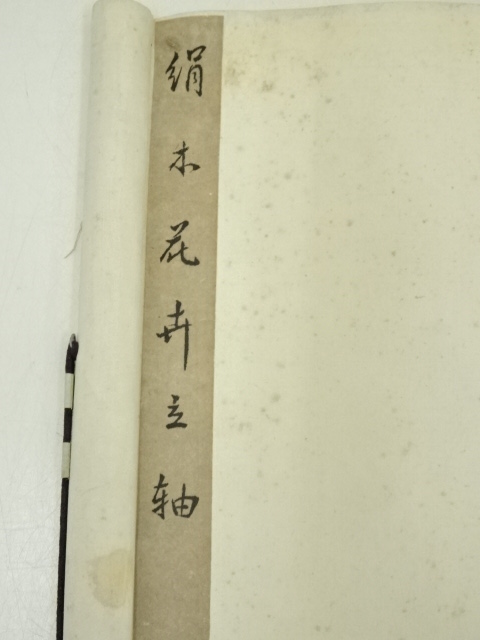 绢木花卉立轴